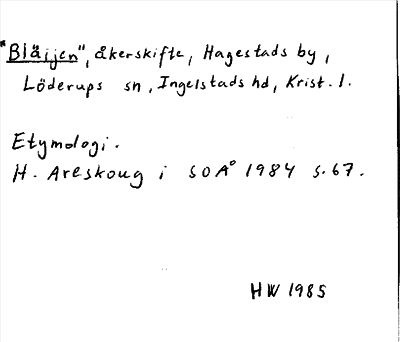 "Bläijen", åkerskifte, Hagestads by,
Löderups sn, Ingelstads hd, Krist. l.
Etymologi.
H. Areskoug i SOÅ 1984 s. 67.
HW 1985